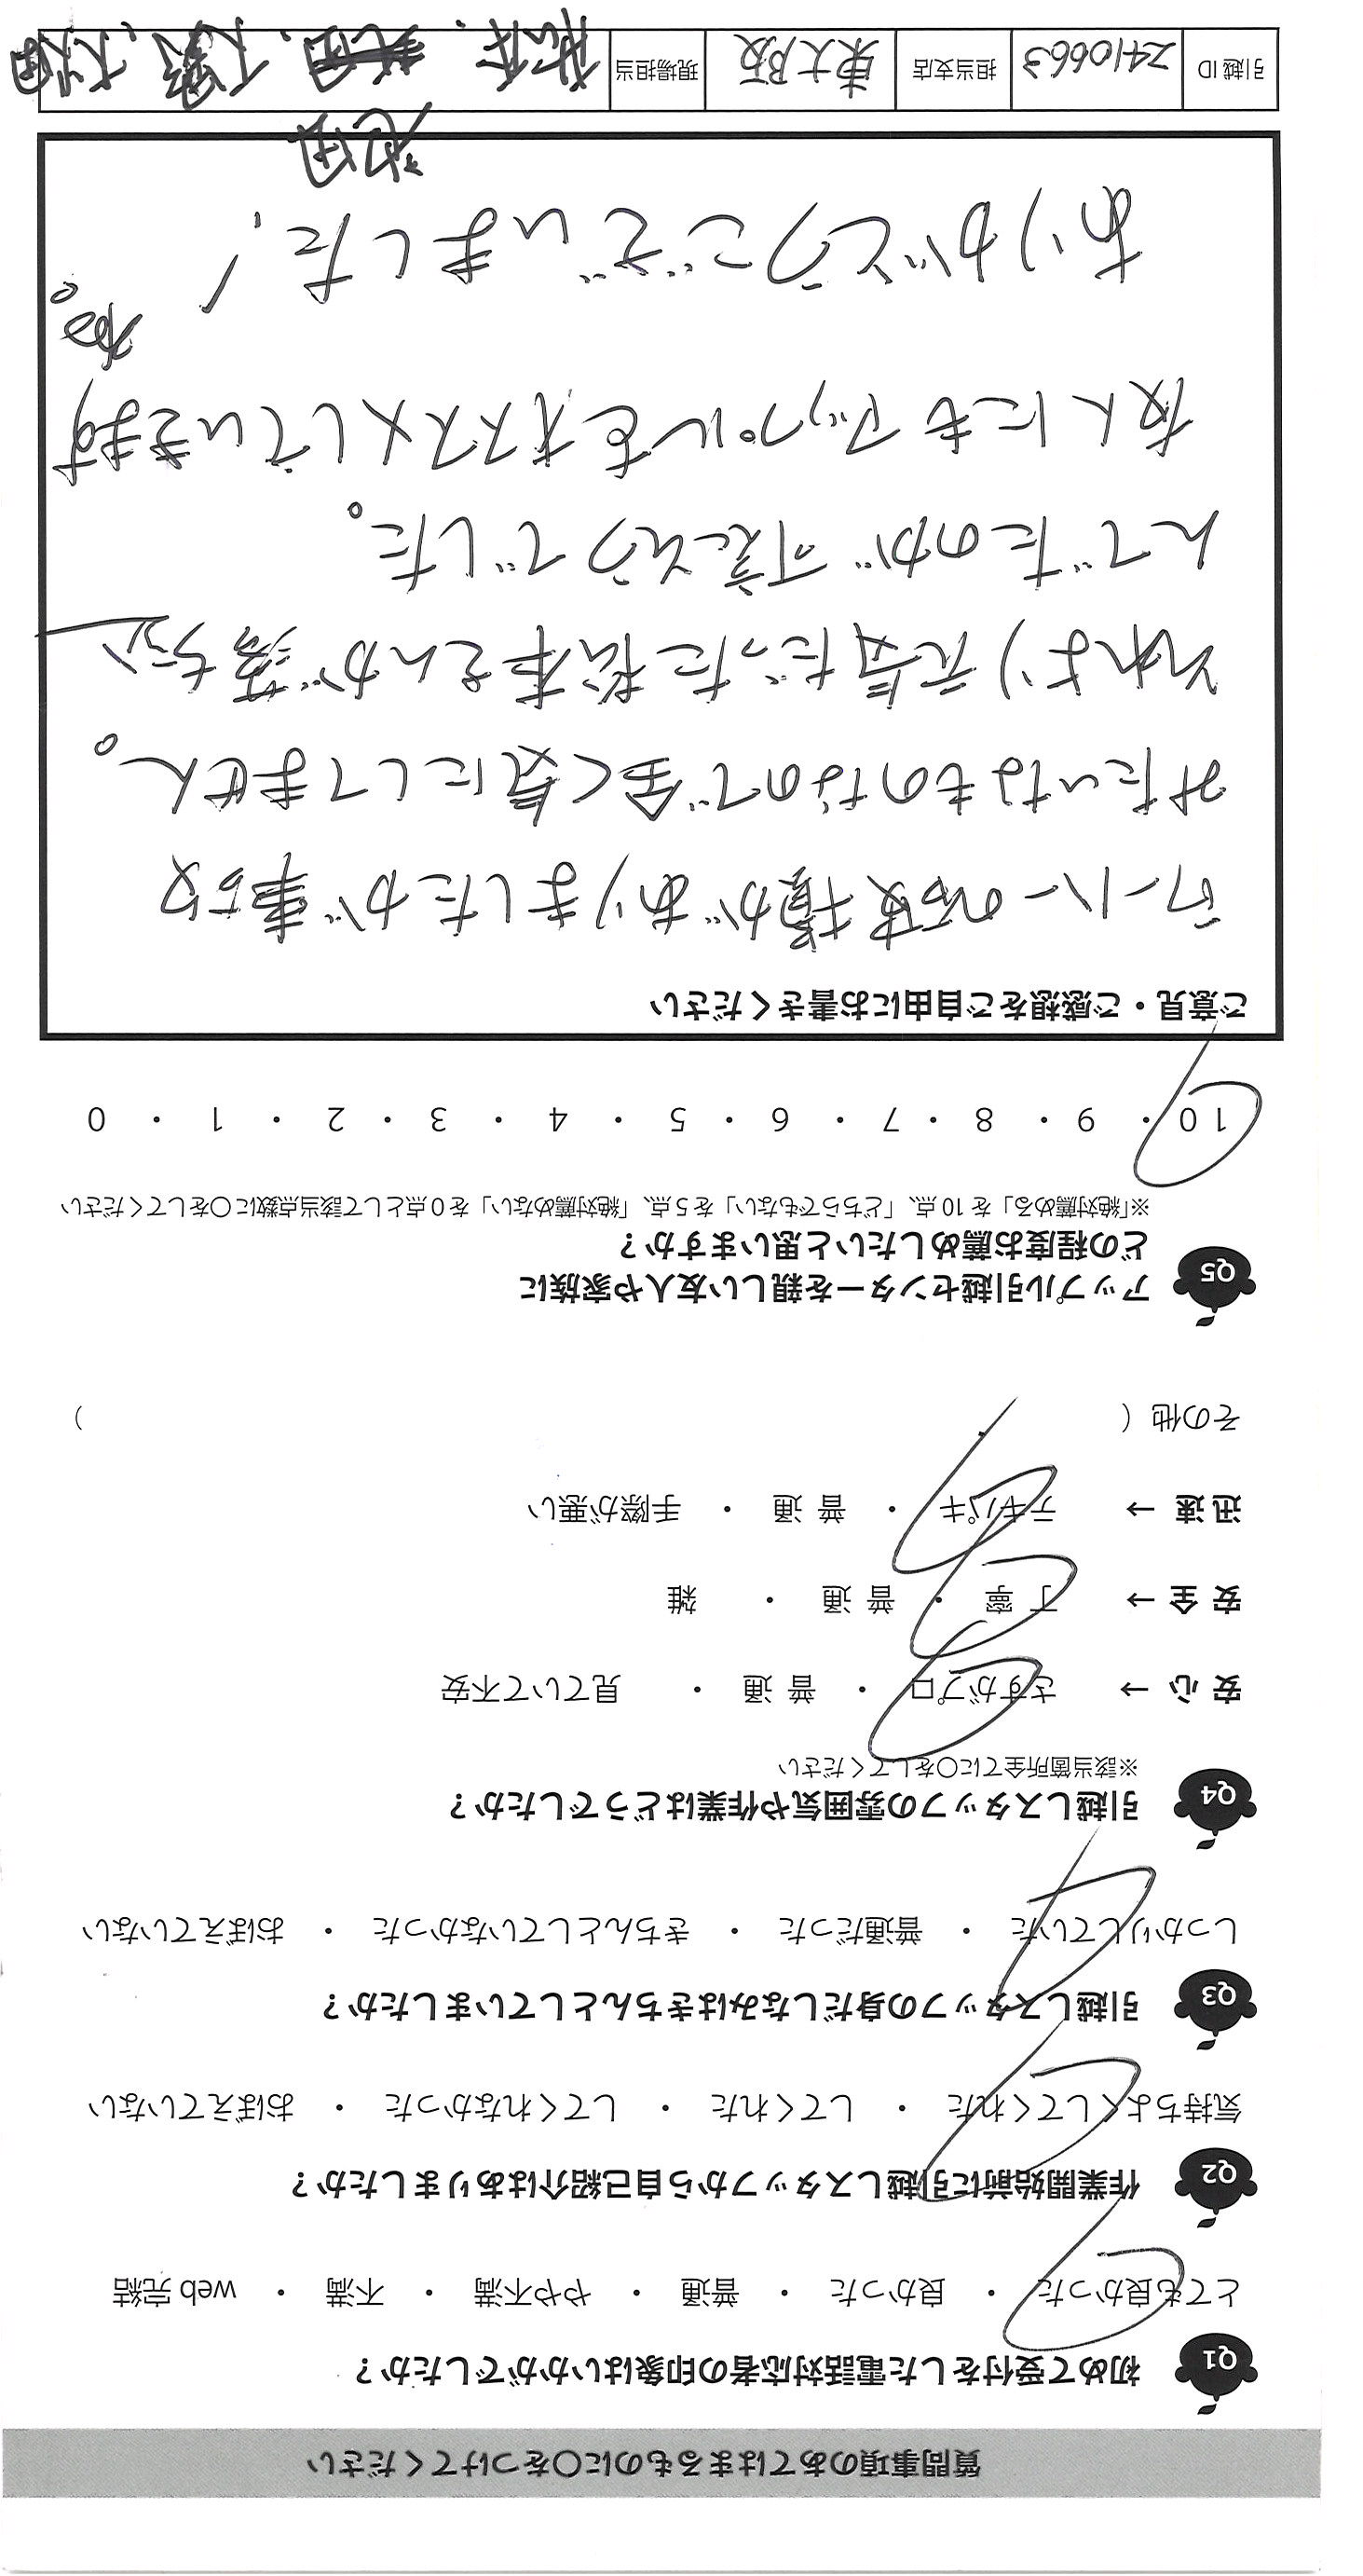 質問事項のあてはまるものに○をつけてください
Q1 初めて受付をした電話対応者の印象はいかがでしたか？
とても良かった ・ 良かった ・ 普通 ・ やや不満 ・ 不満 ・ web 完結
Q2 作業開始前に引越しスタッフから自己紹介はありましたか？
気持ちよくしてくれた ・ してくれた ・ してくれなかった ・ おぼえていない
Q3 引越しスタッフの身だしなみはきちんとしていましたか？
しっかりしていた ・ 普通だった ・ きちんとしていなかった ・ おぼえていない
Q4 引越しスタッフの雰囲気や作業はどうでしたか？
※該当箇所全てに○をしてください
安 心 → さすがプロ ・ 普 通 ・ 見ていて不安
安 全 → 丁 寧 ・ 普 通 ・ 雑
迅 速 → テキパキ ・ 普 通 ・ 手際が悪い
その他（ ）
Q5 アップル引越センターを親しい友人や家族に
どの程度お薦めしたいと思いますか？
※「絶対薦める」を 10 点、「どちらでもない」を 5 点、「絶対薦めない」を 0 点として該当点数に○をしてください
10 ・ 9 ・ 8 ・ 7 ・ 6 ・ 5 ・ 4 ・ 3 ・ 2 ・ 1 ・ 0
ご意見・ご感想をご自由にお書きください
の破損がありましたが事故
みたいなものなので全く気にしてません。
それより元気だった松本さんが落ちこ
んでたのが可哀そうでした。
友人にもアップルをオススメしています
ね。
ありがとうございました！
池田
引越 ID Z410663 担当支店 東大阪 現場担当 松本、